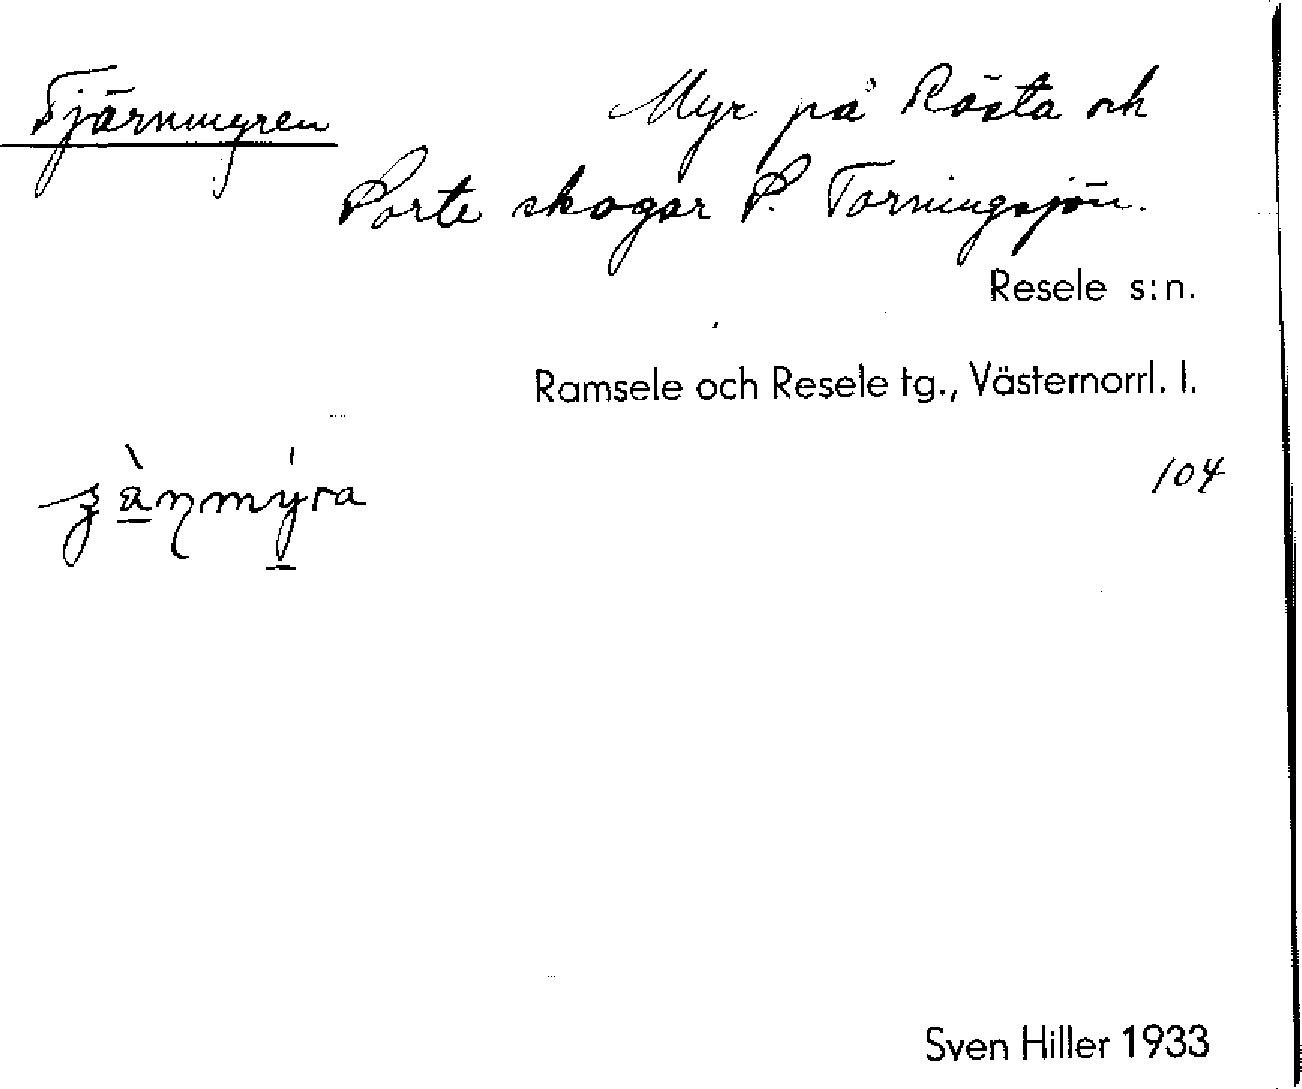 Tjärnmyren
Myr på Rösta och
Porte skogar P. Torningsjön.
Resele s:n.
Ramsele och Resele tg., Västernorrl. l.
104
Sven Hiller 1933